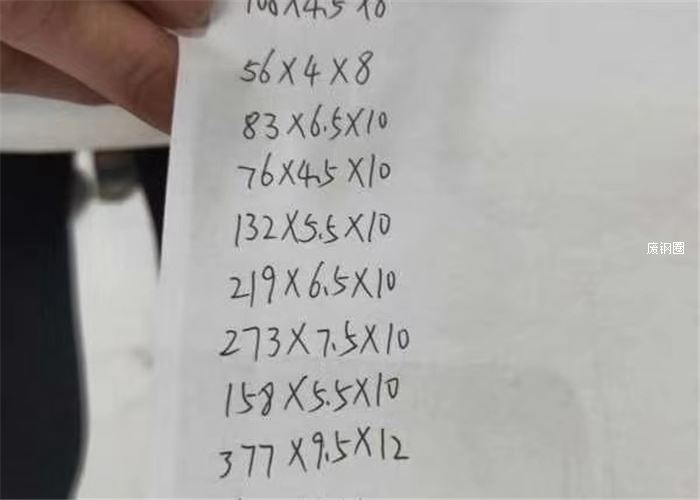 56×4×8
83×6.5×10
76×4.5×10
132×5.5×10
219×6.5×10
废钢圈
273×7.5×10
158×5.5×10
377×9.5×12